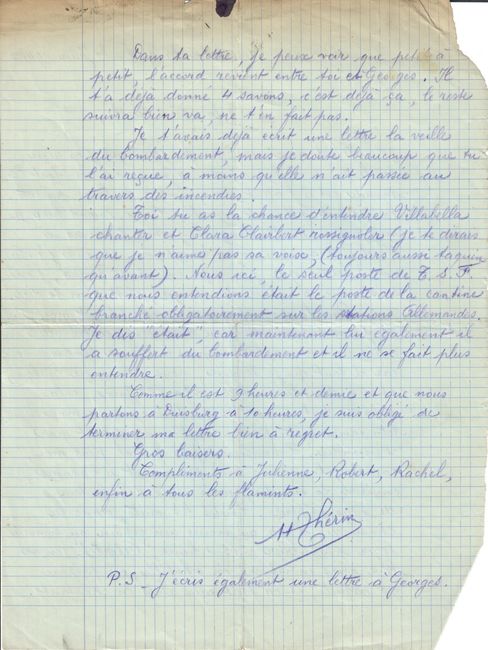 Dans ta lettre, je peux voir que petit à
petit, l'accord revient entre toi et Georges. Il
t'a déjà donné 4 savons, c'est déjà ça, le reste
suivra bien va, ne t'en fait pas.
Je t'avais déjà écrit une lettre la veille
du bombardement, mais je doute beaucoup que tu
l'ai reçue, à moins qu'elle n'ait passée au
travers des incendies.
Toi tu as la chance d'entendre Villabella
chanter et Clara Clairbert rossignoler (je te dirais
que je n'aime pas sa voix, (toujours aussi taquin
qu'avant). Nous ici, le seul poste de T.S.F.
que nous entendions était le poste de la cantine
branché obligatoirement sur les stations Allemandes.
Je dis "était", car maintenant lui également il
a souffert du bombardement et il ne se fait plus
entendre.
Comme il est 9 heures et demie et que nous
partons à Duisburg à 10 heures, je suis obligé de
terminer ma lettre bien à regret.
Gros baisers.
Compliments à Julienne, Robert, Rachel,
enfin à tous les flamints.
H Thérin
P.S _ J'écris également une lettre à Georges.